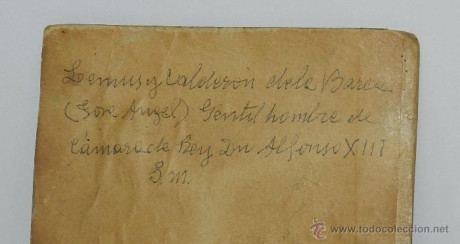 Lemus y Calderón de la Barca
(Jose Angel) Gentil hombre de
Cámara de Rey Dn Alfonso XIII
S m.
www.todocoleccion.net